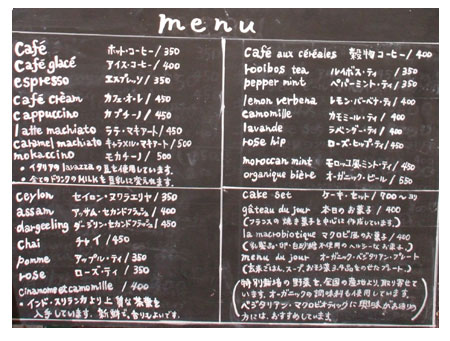 menu
Café ホット・コーヒー/350
Café glacé アイス・コーヒー/400
espresso エスプレッソ/350
café crèam カフェ・オ・レ/450
cappuccino カプチーノ/450
latte machiato ラテ・マキアート/450
caramel machiato キャラメル・マキアート/500
mokaccino モカチーノ/500
・イタリアのlavazzaの豆を使用しています。
・全てのドリンクのMILKを豆乳に変えれます。
ceylon セイロン・ヌワラエリヤ/350
assam アッサム・セカンドフラッシュ/400
dargeeling ダージリン・セカンドフラッシュ/450
chai チャイ/450
pomme アップル・ティ/350
rose ローズ・ティ/350
cinanome et camomille/400
・インド・スリランカより上質な茶葉を
入手しています。新鮮で、香りもよいです。
Café aux céréales 穀物コーヒー/400
rooibos tea ルイボス・ティ/350
pepper mint ペパーミント・ティ/350
lemon verbena レモン・バーベナ・ティ/400
camomille カモミール・ティ/400
lavande ラベンダー・ティ/400
rose hip ローズ・ヒップ・ティ/450
moroccan mint モロッコ風ミント・ティ/450
organique bière オーガニック・ビール/550
cake set ケーキ・セット/700〜
gâteau du jour 本日のお菓子/400
(フランスの焼き菓子を中心に作っています。)
la macrobiotique マクロビ風のお菓子/400
(乳製品・卵・白砂糖不使用のヘルシーなお菓子。)
menu du jour オーガニック・ベジタリアン・プレート
(玄米ごはん、スープ、お惣菜3品などをのせたプレート。)
(特別栽培の野菜を、全国の産地より、取り寄せて
います。オーガニックの調味料も使用しています。
ベジタリアン・マクロビオティックに興味がお有りの
方には、おすすめしています。)